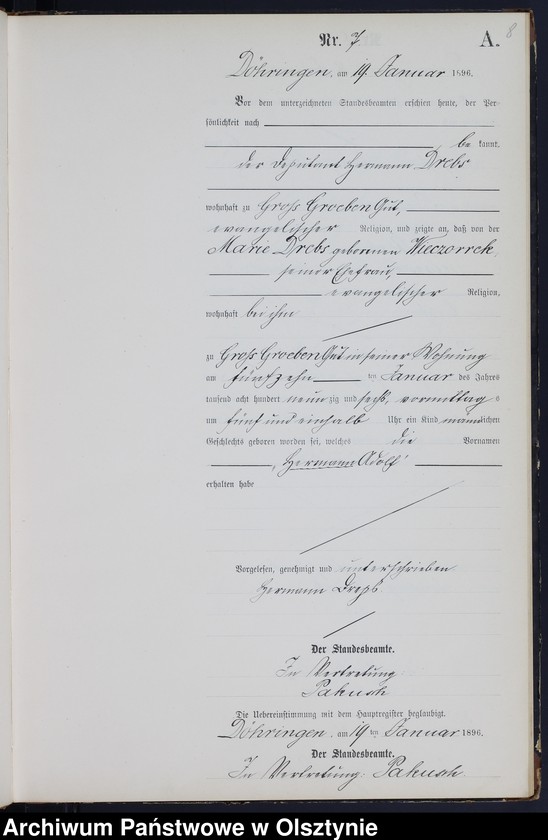 8
Nr. 7 A.
Döhringen, am 19. Januar 1896.
Vor dem unterzeichneten Standesbeamten erschien heute, der Per-
sönlichkeit nach
be kannt,
der Deputant Hermann Drebs
wohnhaft zu Groß Groeben Gut,
evangelischer Religion, und zeigte an, daß von der
Marie Drebs geborenen Wieczorrek,
seiner Ehefrau,
evangelischer Religion,
wohnhaft bei ihm
zu Groß Groeben Gut in seiner Wohnung
am fünfzehn ten Januar des Jahres
tausend acht hundert neun zig und sechs, vormittag s
um fünf und einhalb Uhr ein Kind männlichen
Geschlechts geboren worden sei, welches die Vornamen
„Hermann Adolf“
erhalten habe
Vorgelesen, genehmigt und unterschrieben
Hermann Dreps
Der Standesbeamte.
In Vertretung
Pakusch
Die Uebereinstimmung mit dem Hauptregister beglaubigt.
Döhringen, am 19 ten Januar 1896.
Der Standesbeamte.
In Vertretung: Pakusch.
Archiwum Państwowe w Olsztynie